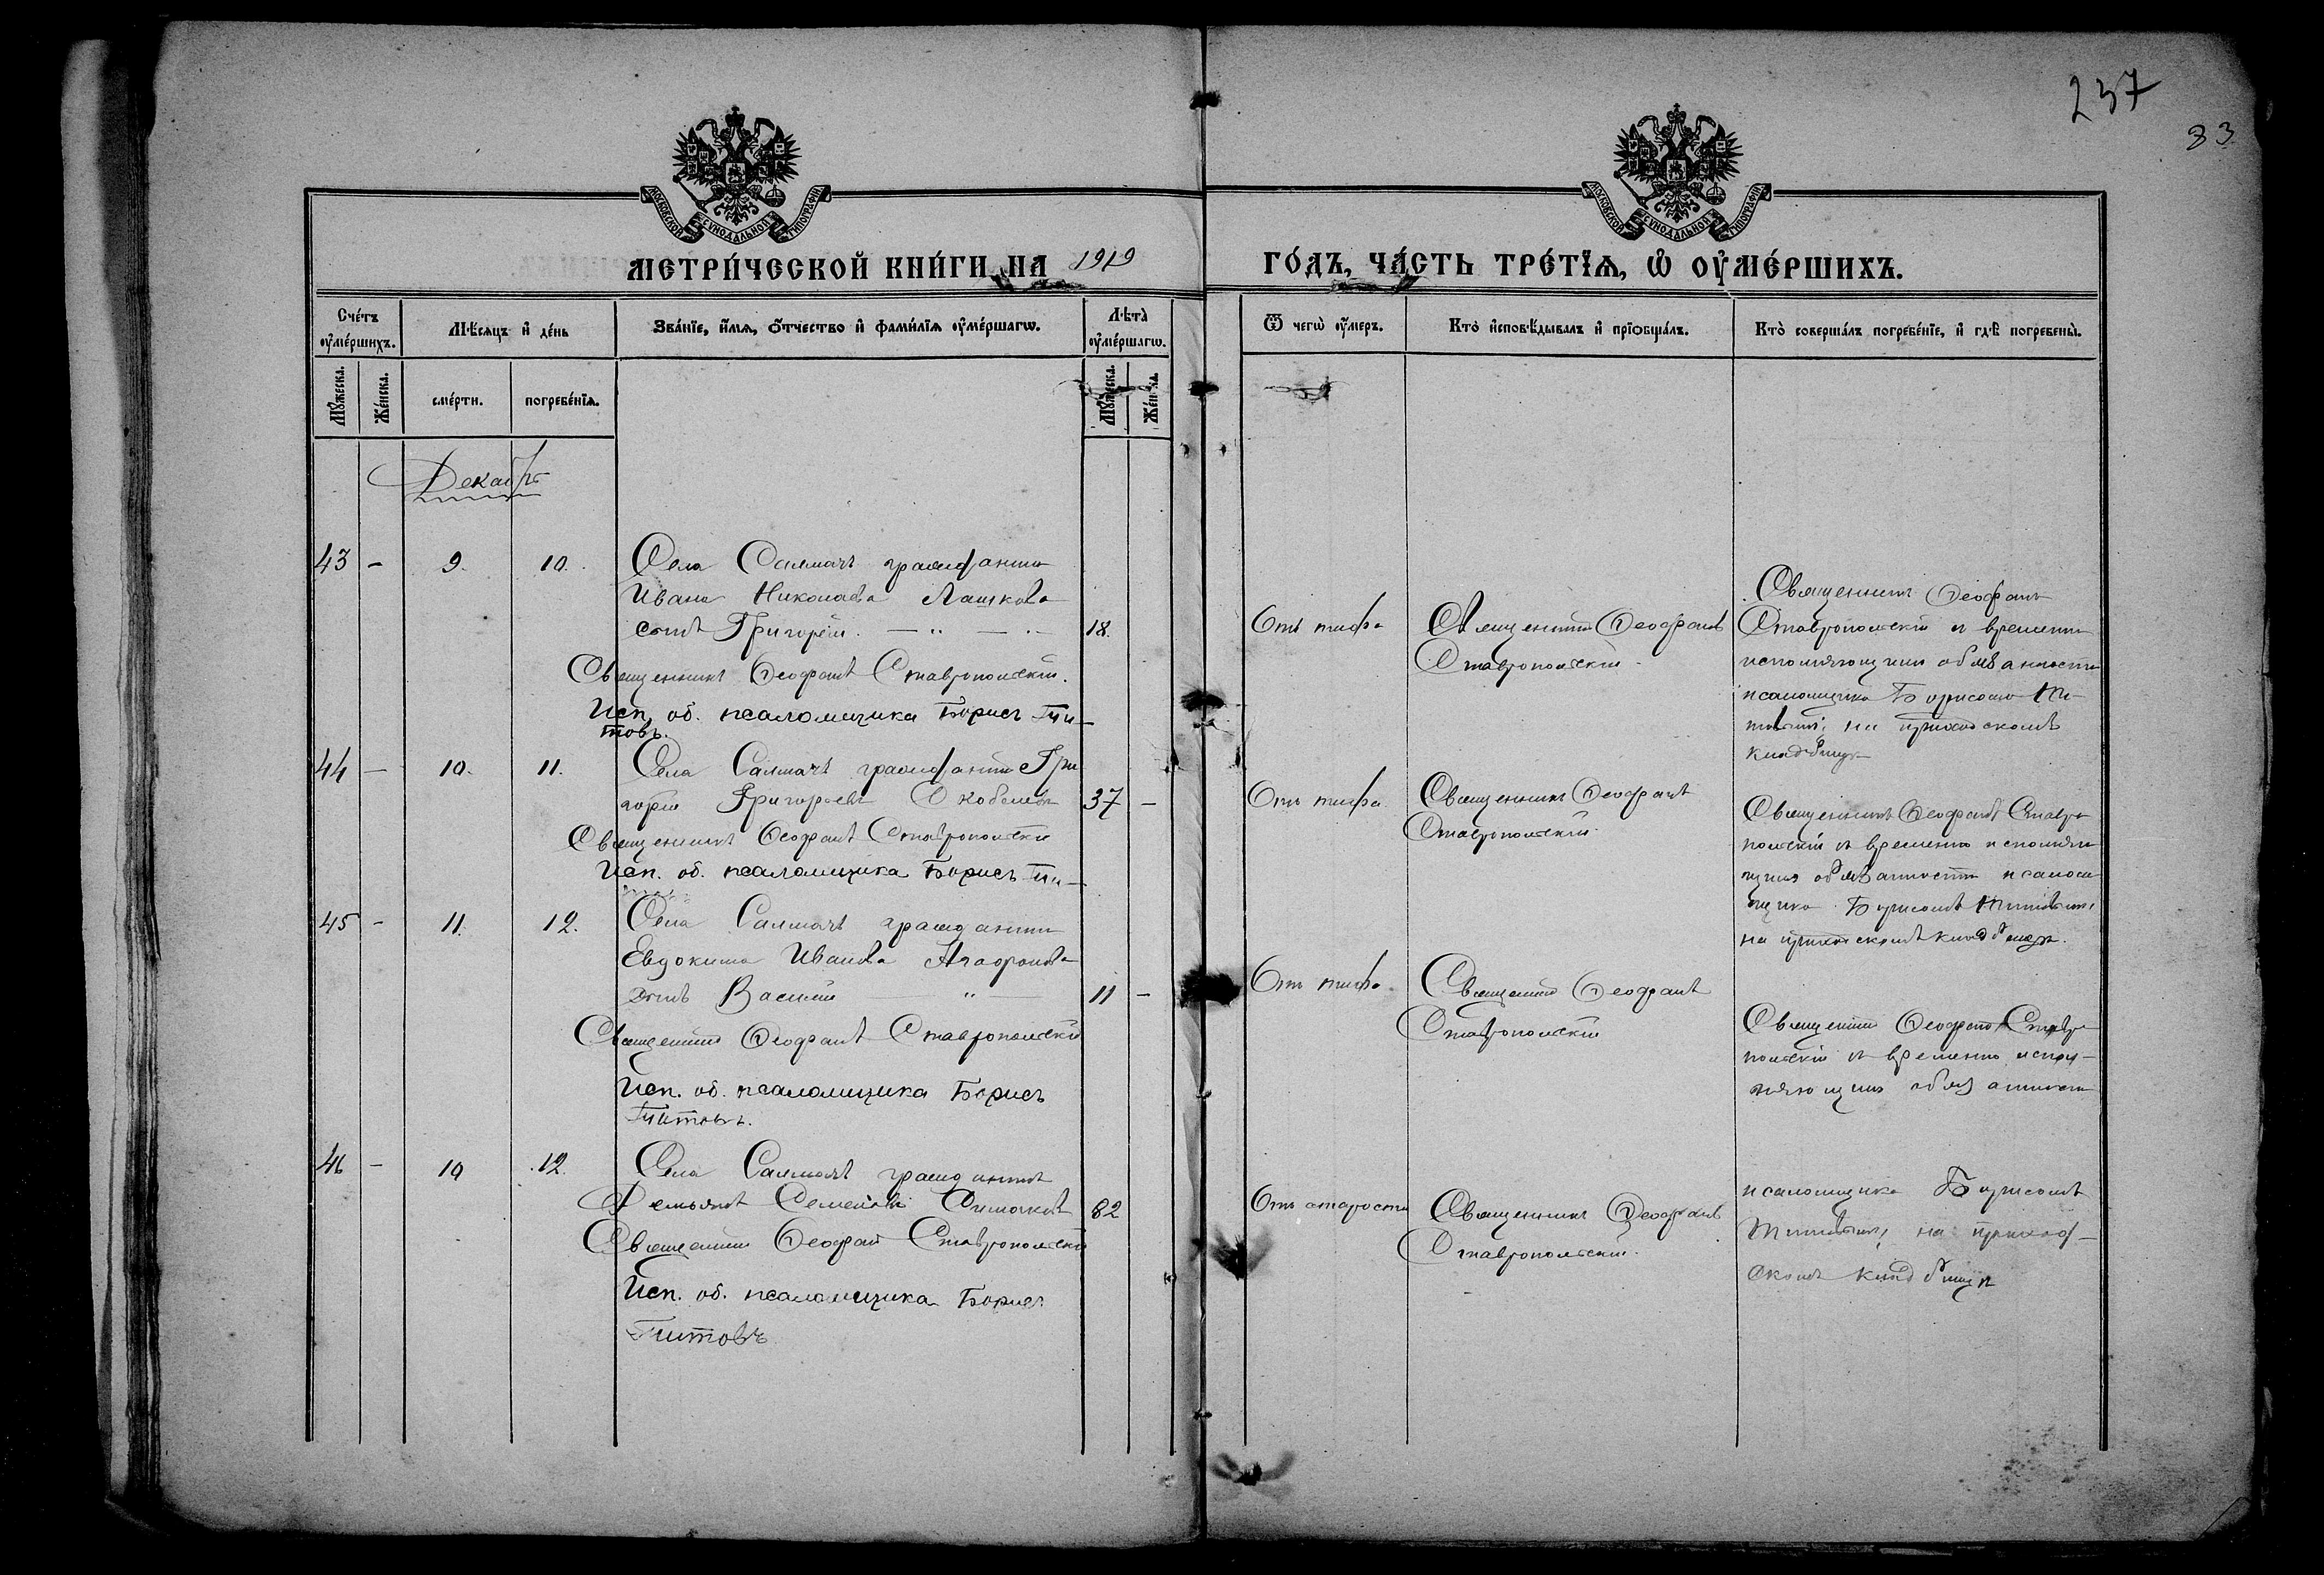 237
83
МОСКОВСКОЙ СѴНОДАЛЬНОЙ ТИПОГРАФІИ
МОСКОВСКОЙ СѴНОДАЛЬНОЙ ТИПОГРАФІИ
МЕТРИ́ЧЕСКОЙ КНИ́ГИ НА 1919 ГО́ДЪ, ЧА́СТЬ ТРЕ́ТЇѦ, Ѡ҆ ОУ҆МЕ́РШИХЪ.
Сче́тъ оу҆ме́ршихъ.
Мѣ́сяцъ и҆ де́нь
Зва́нїе, и҆́мѧ, ѻ҆́тчество и҆ фами́лїѧ оу҆ме́ршагѡ.
Лѣ́та оу҆ме́ршагѡ.
Ѿ чегѡ̀ оу҆́меръ.
Кто̀ и҆сповѣ́дывалъ и҆ прїѡбща́лъ.
Кто̀ соверша́лъ погребе́нїе, и҆ гдѣ̀ погребены̀.
Му́жеска.
Же́нска.
сме́рти.
погребе́нїѧ.
Му́жеска.
Же́нска.
Декабрь
43 - 9. 10.
Села Салмачъ гражданина
Ивана Николаева Лашкова
сынъ Григорій. — " — " 18.
Священникъ Ѳеофанъ Ставропольскій.
Исп. об. псаломщика Борисъ Ти-
товъ.
Отъ тифа
Священникъ Ѳеофанъ
Ставропольскій.
Священникъ Ѳеофанъ
Ставропольскій и временно
исполняющимъ обязанности
псаломщика Борисомъ Ти-
товымъ, на приходскомъ
кладбищѣ
44 — 10. 11.
Села Салмачъ гражданинъ Гри
горій Григорьевъ Скобелевъ 37 —
Священникъ Ѳеофанъ Ставропольскій
Исп. об. псаломщика Борисъ Ти-
Отъ тифа
Священникъ Ѳеофанъ
Ставропольскій.
Священникъ Ѳеофанъ Ставро
польскій и временно исполняю
щимъ обязанности псалом
щика Борисомъ Титовымъ,
на приходскомъ кладбищѣ.
45 - 11. 12.
Села Салмачъ гражданина
Евдокима Иванова Агафонова
сынъ Василій — " — 11 —
Священникъ Ѳеофанъ Ставропольскій
Исп. об. псаломщика Борисъ
Титовъ.
Отъ тифа.
Священникъ Ѳеофанъ
Ставропольскій
Священникъ Ѳеофанъ Ставро
польскій и временно испол-
няющимъ обязанности
46 - 10 12.
Села Салмачъ гражданинъ
Демьянъ Семеновъ 82
Священникъ Ѳеофанъ Ставропольскій
Исп. об. псаломщика Борисъ
Титовъ.
Отъ старости
Священникъ Ѳеофанъ
Ставропольскій.
псаломщика Борисомъ
Титовымъ, на приход-
скомъ кладбищѣ